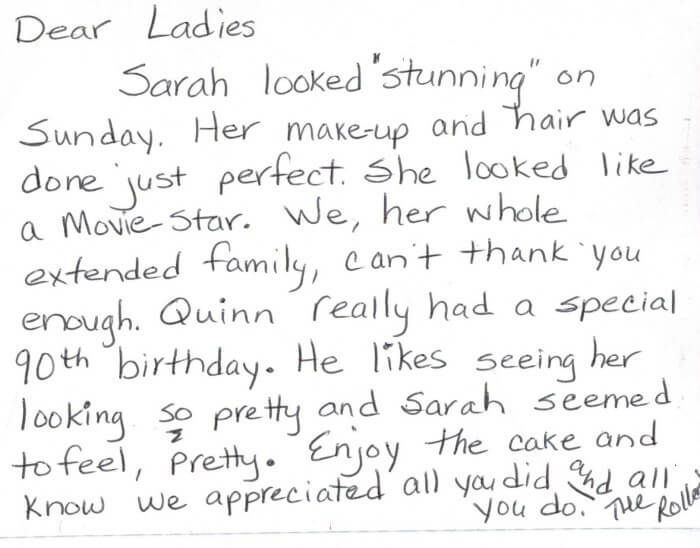 Dear Ladies
Sarah looked "stunning" on
Sunday. Her make-up and hair was
done just perfect. She looked like
a Movie-Star. We, her whole
extended family, can't thank you
enough. Quinn really had a special
90th birthday. He likes seeing her
looking so pretty and Sarah seemed
to feel, pretty. Enjoy the cake and
know we appreciated all you did and all
you do. The